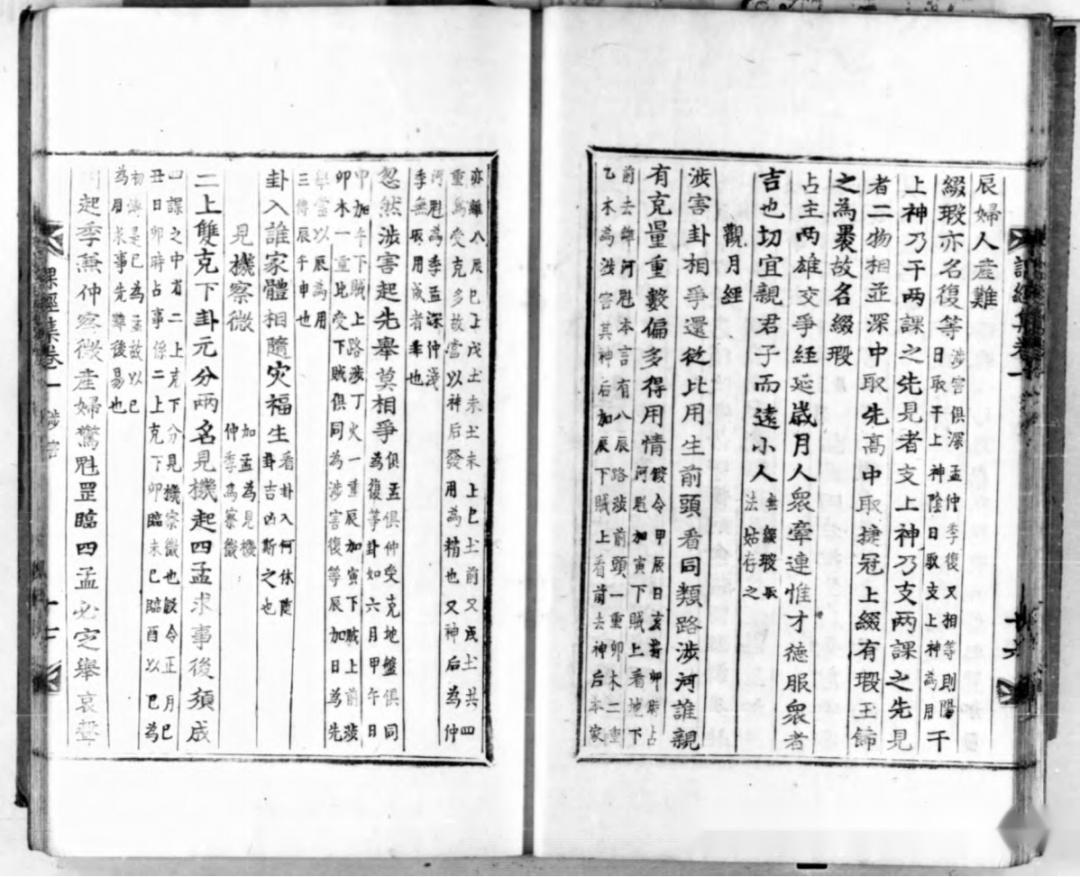 辰婦人産難
綴瑕亦名復等涉害俱深孟仲季復又相等則陽
日取干上神陰日取支上神為用干
上神乃干两課之先見者支上神乃支两課之先見
者二物相並深中取先高中取捷冠上綴有瑕玉飾
之為累故名綴瑕
占主两雄交爭経延歲月人衆牽連惟才德服衆者
吉也切宜親君子而遠小人
法姑存之
觀月經
涉害卦相爭還從比用生前頭看同類路涉河誰親
有克量重數偏多得用情假令甲辰日
河魁加寅下賊上看地下
前去雖河魁本言有八辰路涉前頭一重卯木二重
乙木為涉害其神后加辰下賊上看前去神后本家
亦雖八辰巳上戊土未土未上巳土前又戌土共四
重為受克多故當以神后發用為精也又神后為仲
河魁為季孟深仲淺
季無取用戒者準也
忽然涉害起先舉莫相爭俱孟俱仲受克地盤俱同
為復等卦如六月甲午日
甲加午下賊上路涉丁火一重辰加寅下賊上前涉
卯木一重比受下賊俱同為涉害復等辰加日為先
舉當以辰為用
三傳辰午申也
卦入誰家體相隨灾福生看卦入何休廢
卦吉凶斯之也
見機察微
加孟為見機
仲季為察微
二上雙克下卦元分兩名見機起四孟求事後須成
四課之中有二上克下分見機察微也假令正月巳
丑日卯時占事係二上克下卯臨未巳臨酉以巳為
初傳是巳為孟故以巳
為用求事先難後易也
起季兼仲察微産婦驚魁罡臨四孟必定舉哀聲
課經集卷一
涉害
十七